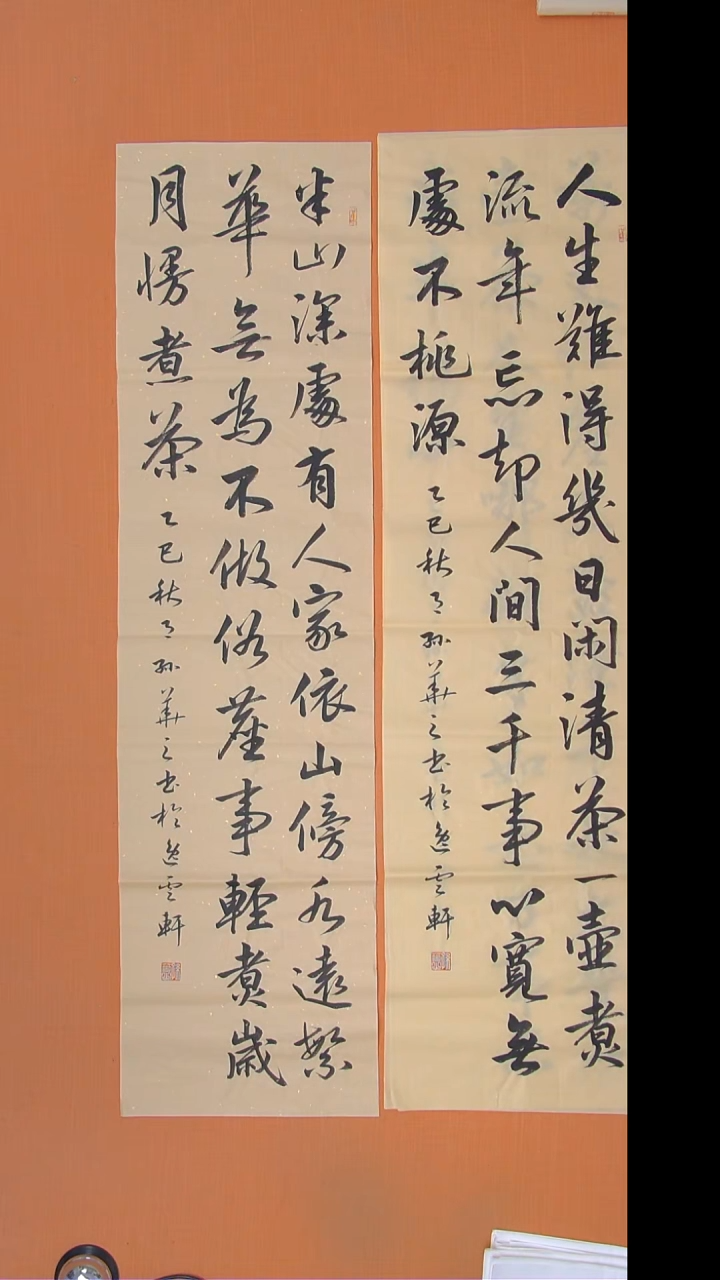 人生難得幾日閑清茶一壺煮
流年忘却人间三千事心寬無
處不桃源
乙巳秋月孫華之书於逸雲軒
半山深處有人家依山傍水遠繁
華無為不做俗塵事輕煮歲
月慢煮茶
乙巳秋月孫華之书於逸雲軒